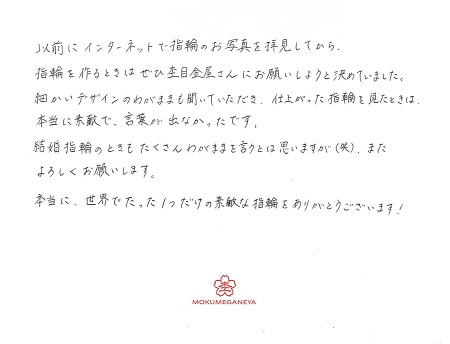 以前にインターネットで指輪のお写真を拝見してから、
指輪を作るときはぜひ杢目金屋さんにお願いしようと決めていました。
細かいデザインのわがままも聞いていただき、仕上がった指輪を見たときは、
本当に素敵で、言葉が出なかったです。
結婚指輪のときもたくさんわがままを言うとは思いますが(笑)、また
よろしくお願いします。
本当に、世界でたった1つだけの素敵な指輪をありがとうございます!
杢
MOKUMEGANEYA